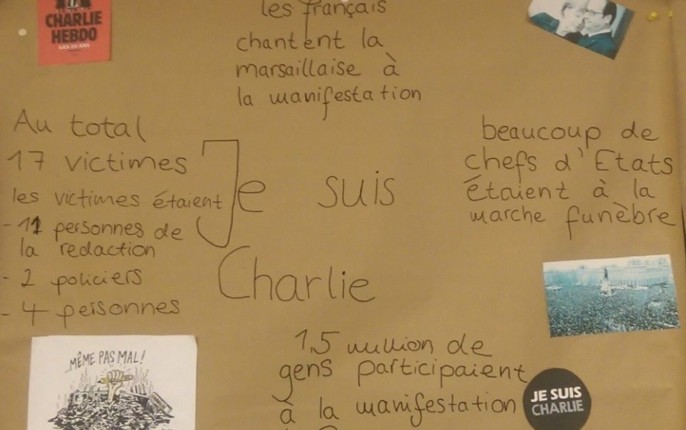 CHARLIE
HEBDO
les français
chantent la
marsaillaise à
la manifestation
Au total
17 victimes
les victimes étaient
- 11 personnes de
la redaction
- 2 policiers
- 4 personnes
Je suis
Charlie
beaucoup de
chefs d'Etats
étaient à la
marche funèbre
MÊME PAS MAL!
1,5 million de
gens participaient
à la manifestation
JE SUIS
CHARLIE